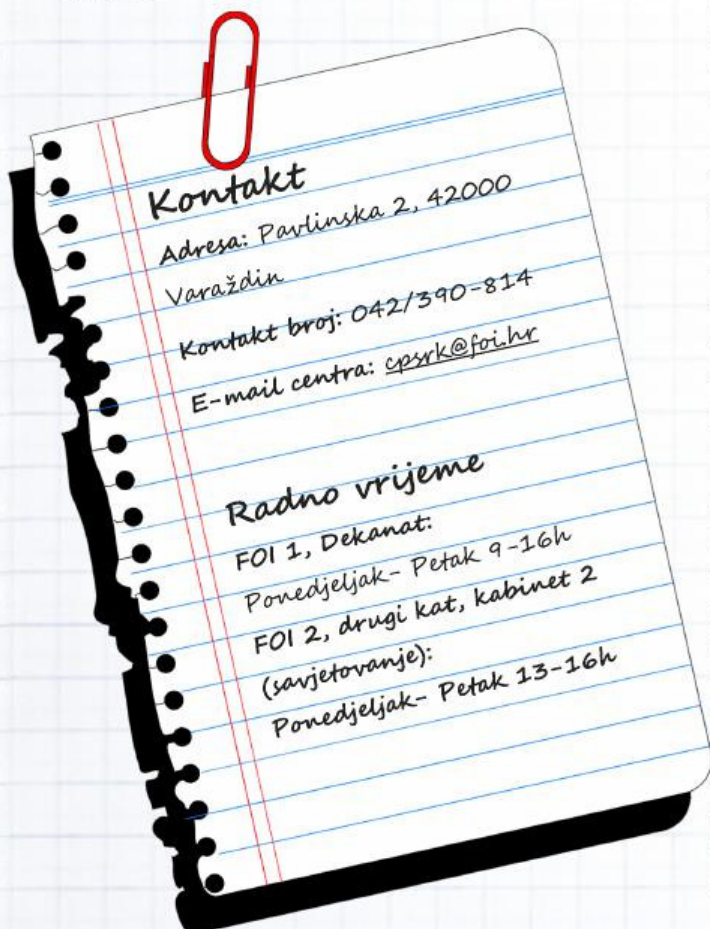 Kontakt
Adresa: Pavlinska 2, 42000
Varaždin
Kontakt broj: 042/390-814
E-mail centra: cpsrk@foi.hr
Radno vrijeme
FOI 1, Dekanat:
Ponedjeljak- Petak 9-16h
FOI 2, drugi kat, kabinet 2
(savjetovanje):
Ponedjeljak- Petak 13-16h